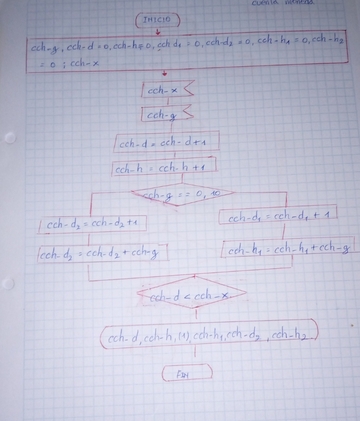 cuenta
INICIO
cch-g, cch-d = 0, cch-h = 0, cch-d1 = 0, cch-d2 = 0, cch-h1 = 0, cch-h2
= 0 ; cch-x
cch-x
cch-g
cch-d = cch-d+1
cch-h = cch-h+1
cch-g == 0, 10
cch-d2 = cch-d2+1
cch-d1 = cch-d1 + 1
cch-d2 = cch-d2 + cch-g
cch-h1 = cch-h1 + cch-g
cch-d < cch-x
cch-d, cch-h, (1), cch-h1, cch-d2, cch-h2
FIN